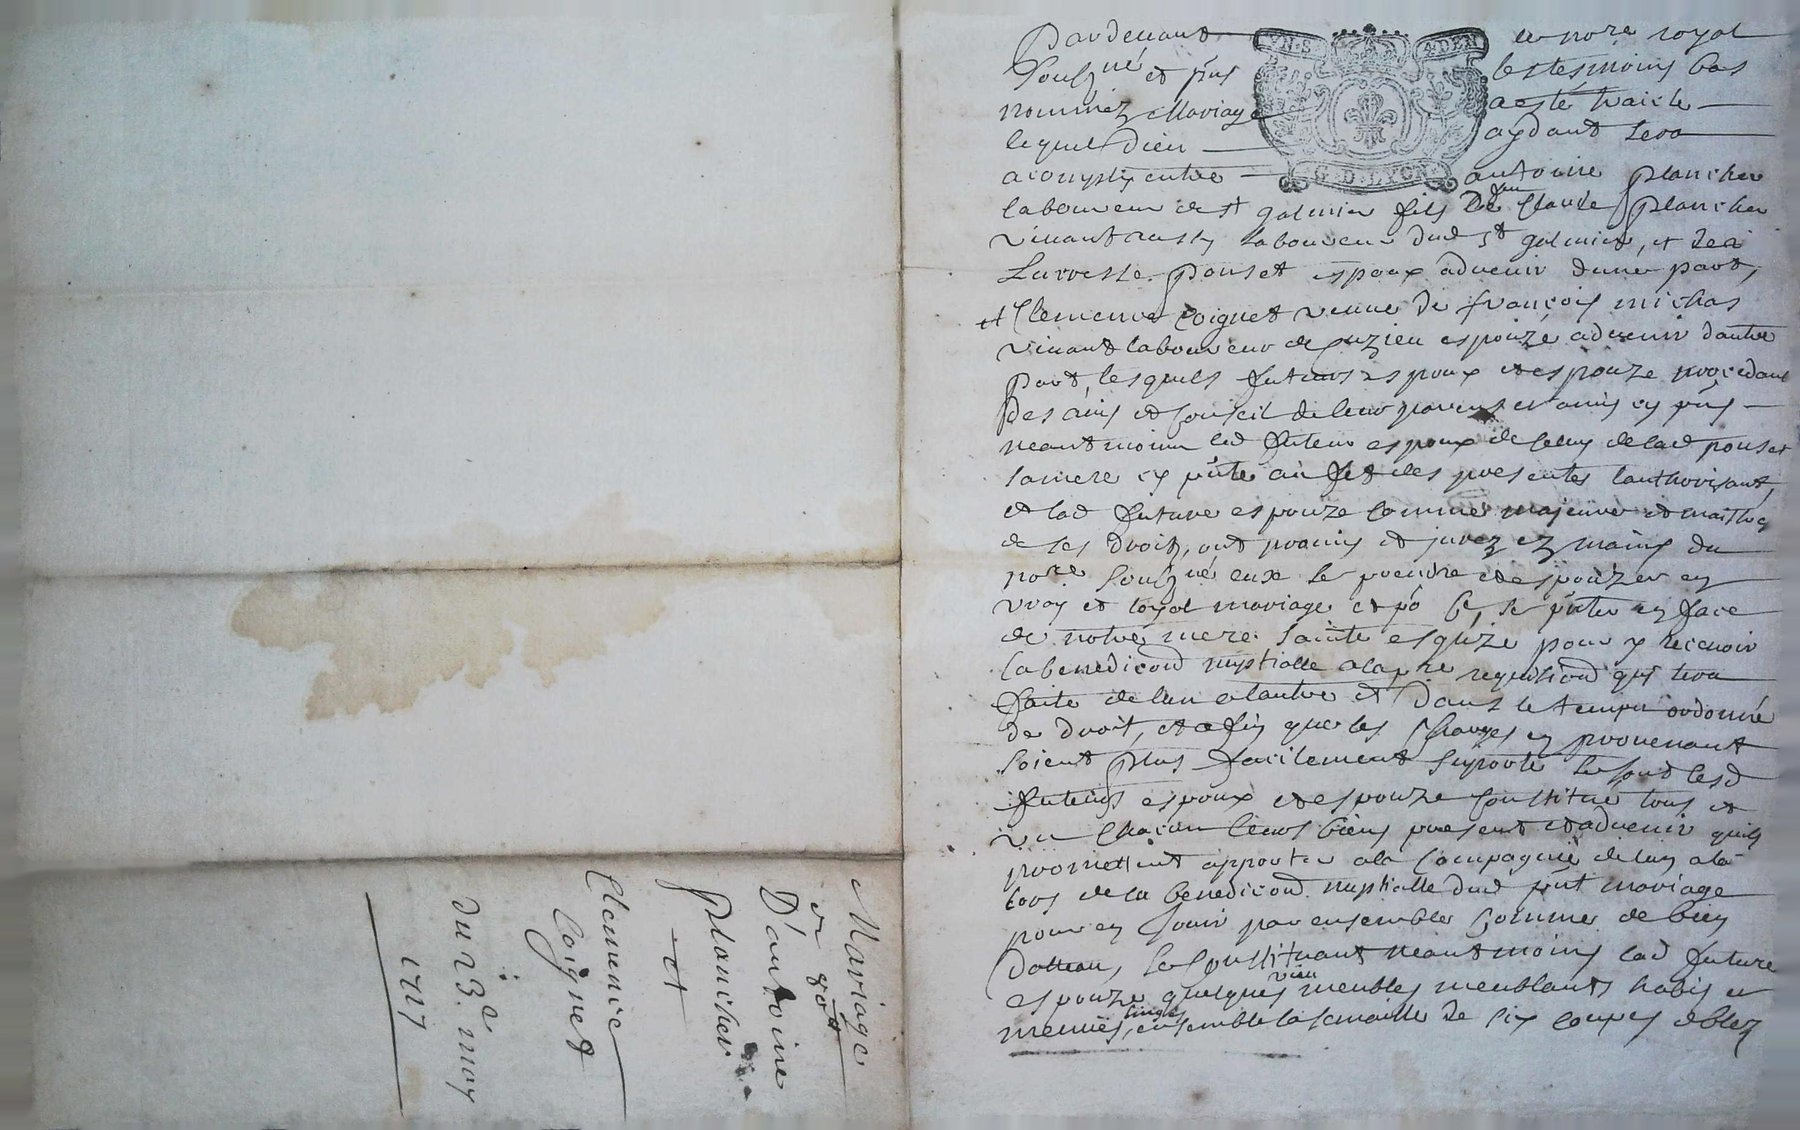 Mariage
et qtt
D'antoine
plancher
et
Clemence
Coignet
du 23e may
1717
VN.S. 4.DEN
G.D.LYON
Pardevant le nore royal
soubzné et pns les tesmoins bas
nommez Mariage a esté traicte
lequel dieu aydant sera
acomply entre antoine plancher
laboureur de st galmier fils de feu Claude plancher
vivant aussy laboureur dud st galmier, et de
Laurence ponset espoux advenir dune part,
et Clemence Coignet veuve de françois michas
vivant laboureur de cuzieu espouze advenir dautre
part, lesquels futeurs espoux et espouze procedant
des avis et conseil de leur parens et amis cy pns
neantmoins led futeur espoux de celuy de lad ponset
sa mere cy pnte au fet des presentes lauthorisant,
et lad future espouze comme majeure et maitresse
de ses droits, ont promis et jurez ez mains du
nore soubzné eux se prendre et espouzer en
vray et loyal mariage et po ce, se pnter en face
de notre mere sainte esglize pour y recevoir
la benediction nuptialle a la pre requisiond qui sera
faite de lun a lautre et dans le temps ordonné
de droit, et afin que les charges en provenant
soient plus facilement suporté se sont lesd
futeurs espoux et espouze constitué tous et
un chacun leurs biens present et advenir quils
promettent apporter a la compagnie de lun a la
lors de la benediction nuptialle dud pnt mariage
pour en jouir par ensembles comme de bien
dotteau, se constituant neantmoins lad future
espouze quelques vieu meubles meublants habis et
menues linges, ensemble la semaille de six coupes de blez